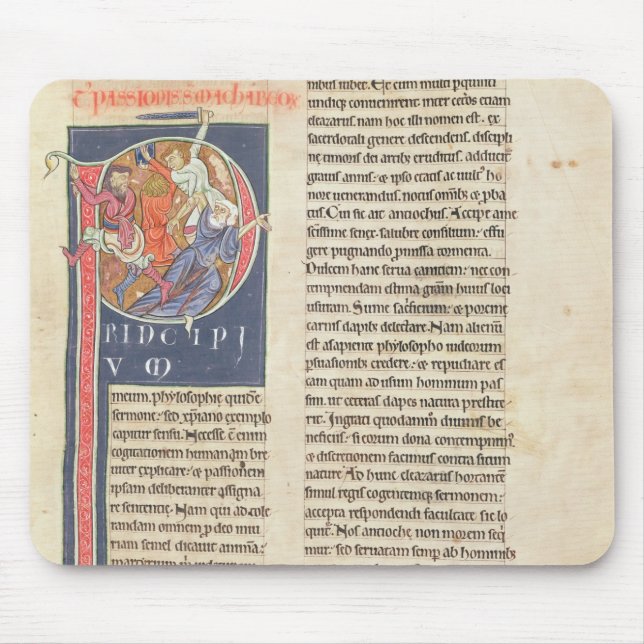 PASSIONIS SS MACHABEOR
PRINCIPI
VM
meum. phylosophie quidē
sermone: sed xp̄iano exemplo
capitur sensu. Necesse ē enim
cogitationem humanam bre
uiter explicare: & passionem
ipsam deliberanter assigna
re sententie. Nam qui ad cole
randam omnem p̱ deo iniu
riam semel dicauit animā:
nibus iubet. Et cum p̱quinti
undiq; conuenirent: inter ceteros etiam
eleazarus nam hoc illi nomen est. ex
sacerdotali genere descendens. discipli
ne timons dei artib; eruditus. adducit̄
grauis annis. & ipso etiacas ac uultu ho
nore uenerandus. notus omīb; & p̱ba
tus. Cui sic ait antiochus. Accipe am̄
senex. salubre consilium: effu
gere pugnando p̱missa tormenta.
Dulcem hanc serua caniciem: nec con
tempnendam estima gr̄am huius loci
uisitatam. Sume sacrificium: & porcine
carnis dapib; delectare. Nam alienum
est a sapiente phylosopho iudeorum
p̱suasionib; credere: & repudiare es
cam quam ad usum hominum pas
sim. ut ceteras dapes natura prestite
rit. Ingrati quodam̄ diuinis be
neficiis: si eorum dona contempnim:
& discretionem facimus contra situm
nature. Ad hunc eleazarus hortantē
simul regis cogentemq; sermonem:
accepta respondendi facultate sic lo
quit̄. Nos antioche non morem seq̄
mur: sed seruatam semp̱ ab hominib;